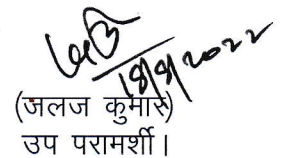 18/8/2022
(जलज कुमार)
उप परामर्शी।